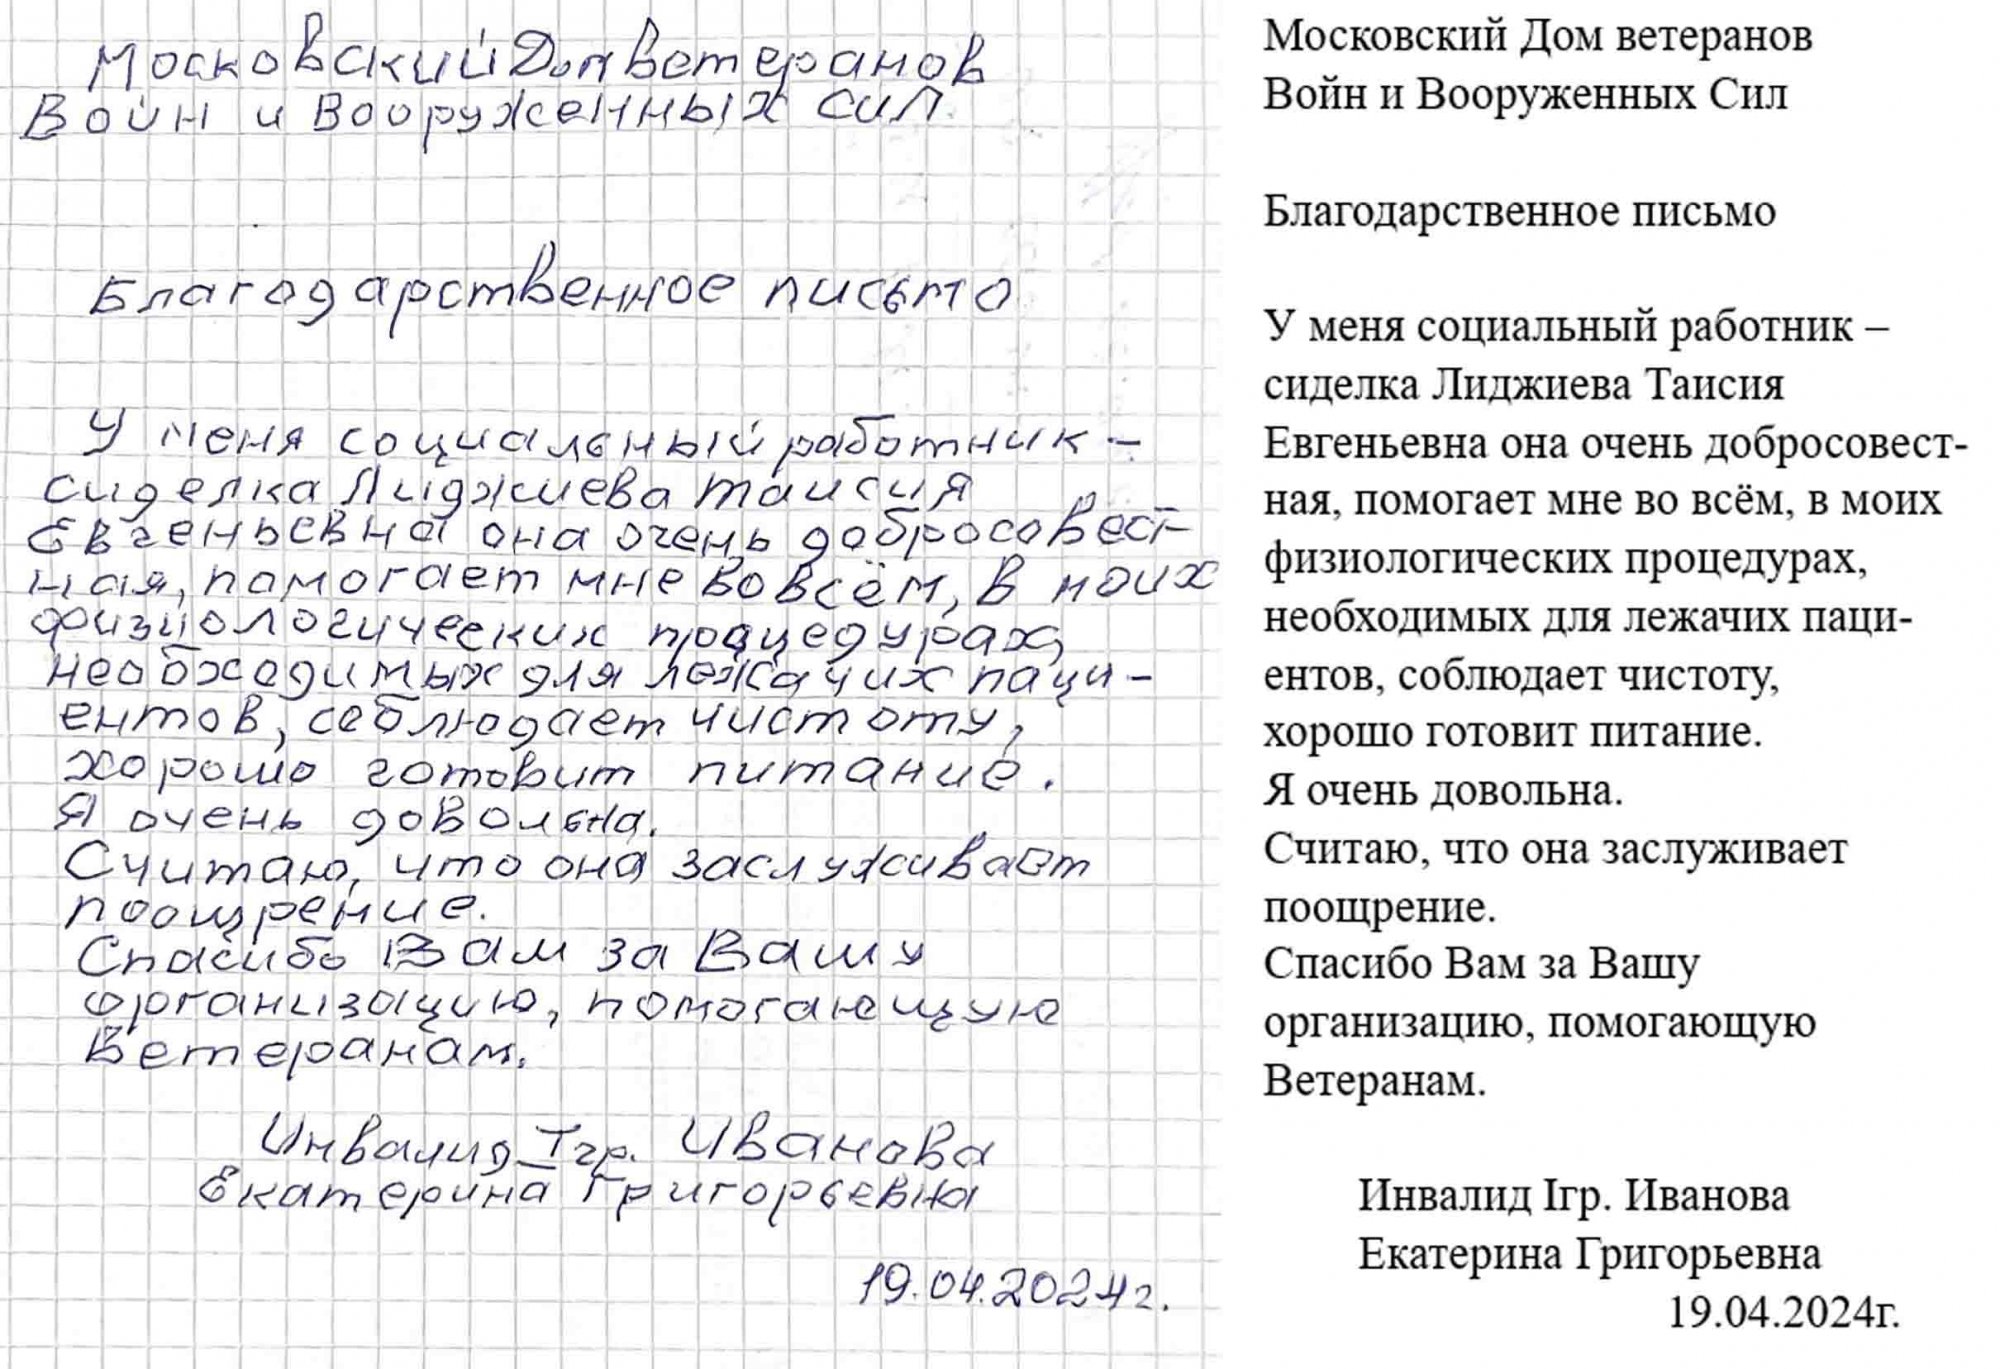 Московский Дом ветеранов
Войн и Вооруженных Сил
Благодарственное письмо
У меня социальный работник –
сиделка Лиджиева Таисия
Евгеньевна она очень добросовест-
ная, помогает мне во всём, в моих
физиологических процедурах,
необходимых для лежачих паци-
ентов, соблюдает чистоту,
хорошо готовит питание.
Я очень довольна.
Считаю, что она заслуживает
поощрение.
Спасибо Вам за Вашу
организацию, помогающую
Ветеранам.
Инвалид Iгр. Иванова
Екатерина Григорьевна
19.04.2024г.
Московский Дом ветеранов
Войн и Вооруженных Сил
Благодарственное письмо
У меня социальный работник –
сиделка Лиджиева Таисия
Евгеньевна она очень добросовест-
ная, помогает мне во всём, в моих
физиологических процедурах,
необходимых для лежачих паци-
ентов, соблюдает чистоту,
хорошо готовит питание.
Я очень довольна.
Считаю, что она заслуживает
поощрение.
Спасибо Вам за Вашу
организацию, помогающую
Ветеранам.
Инвалид Iгр. Иванова
Екатерина Григорьевна
19.04.2024г.